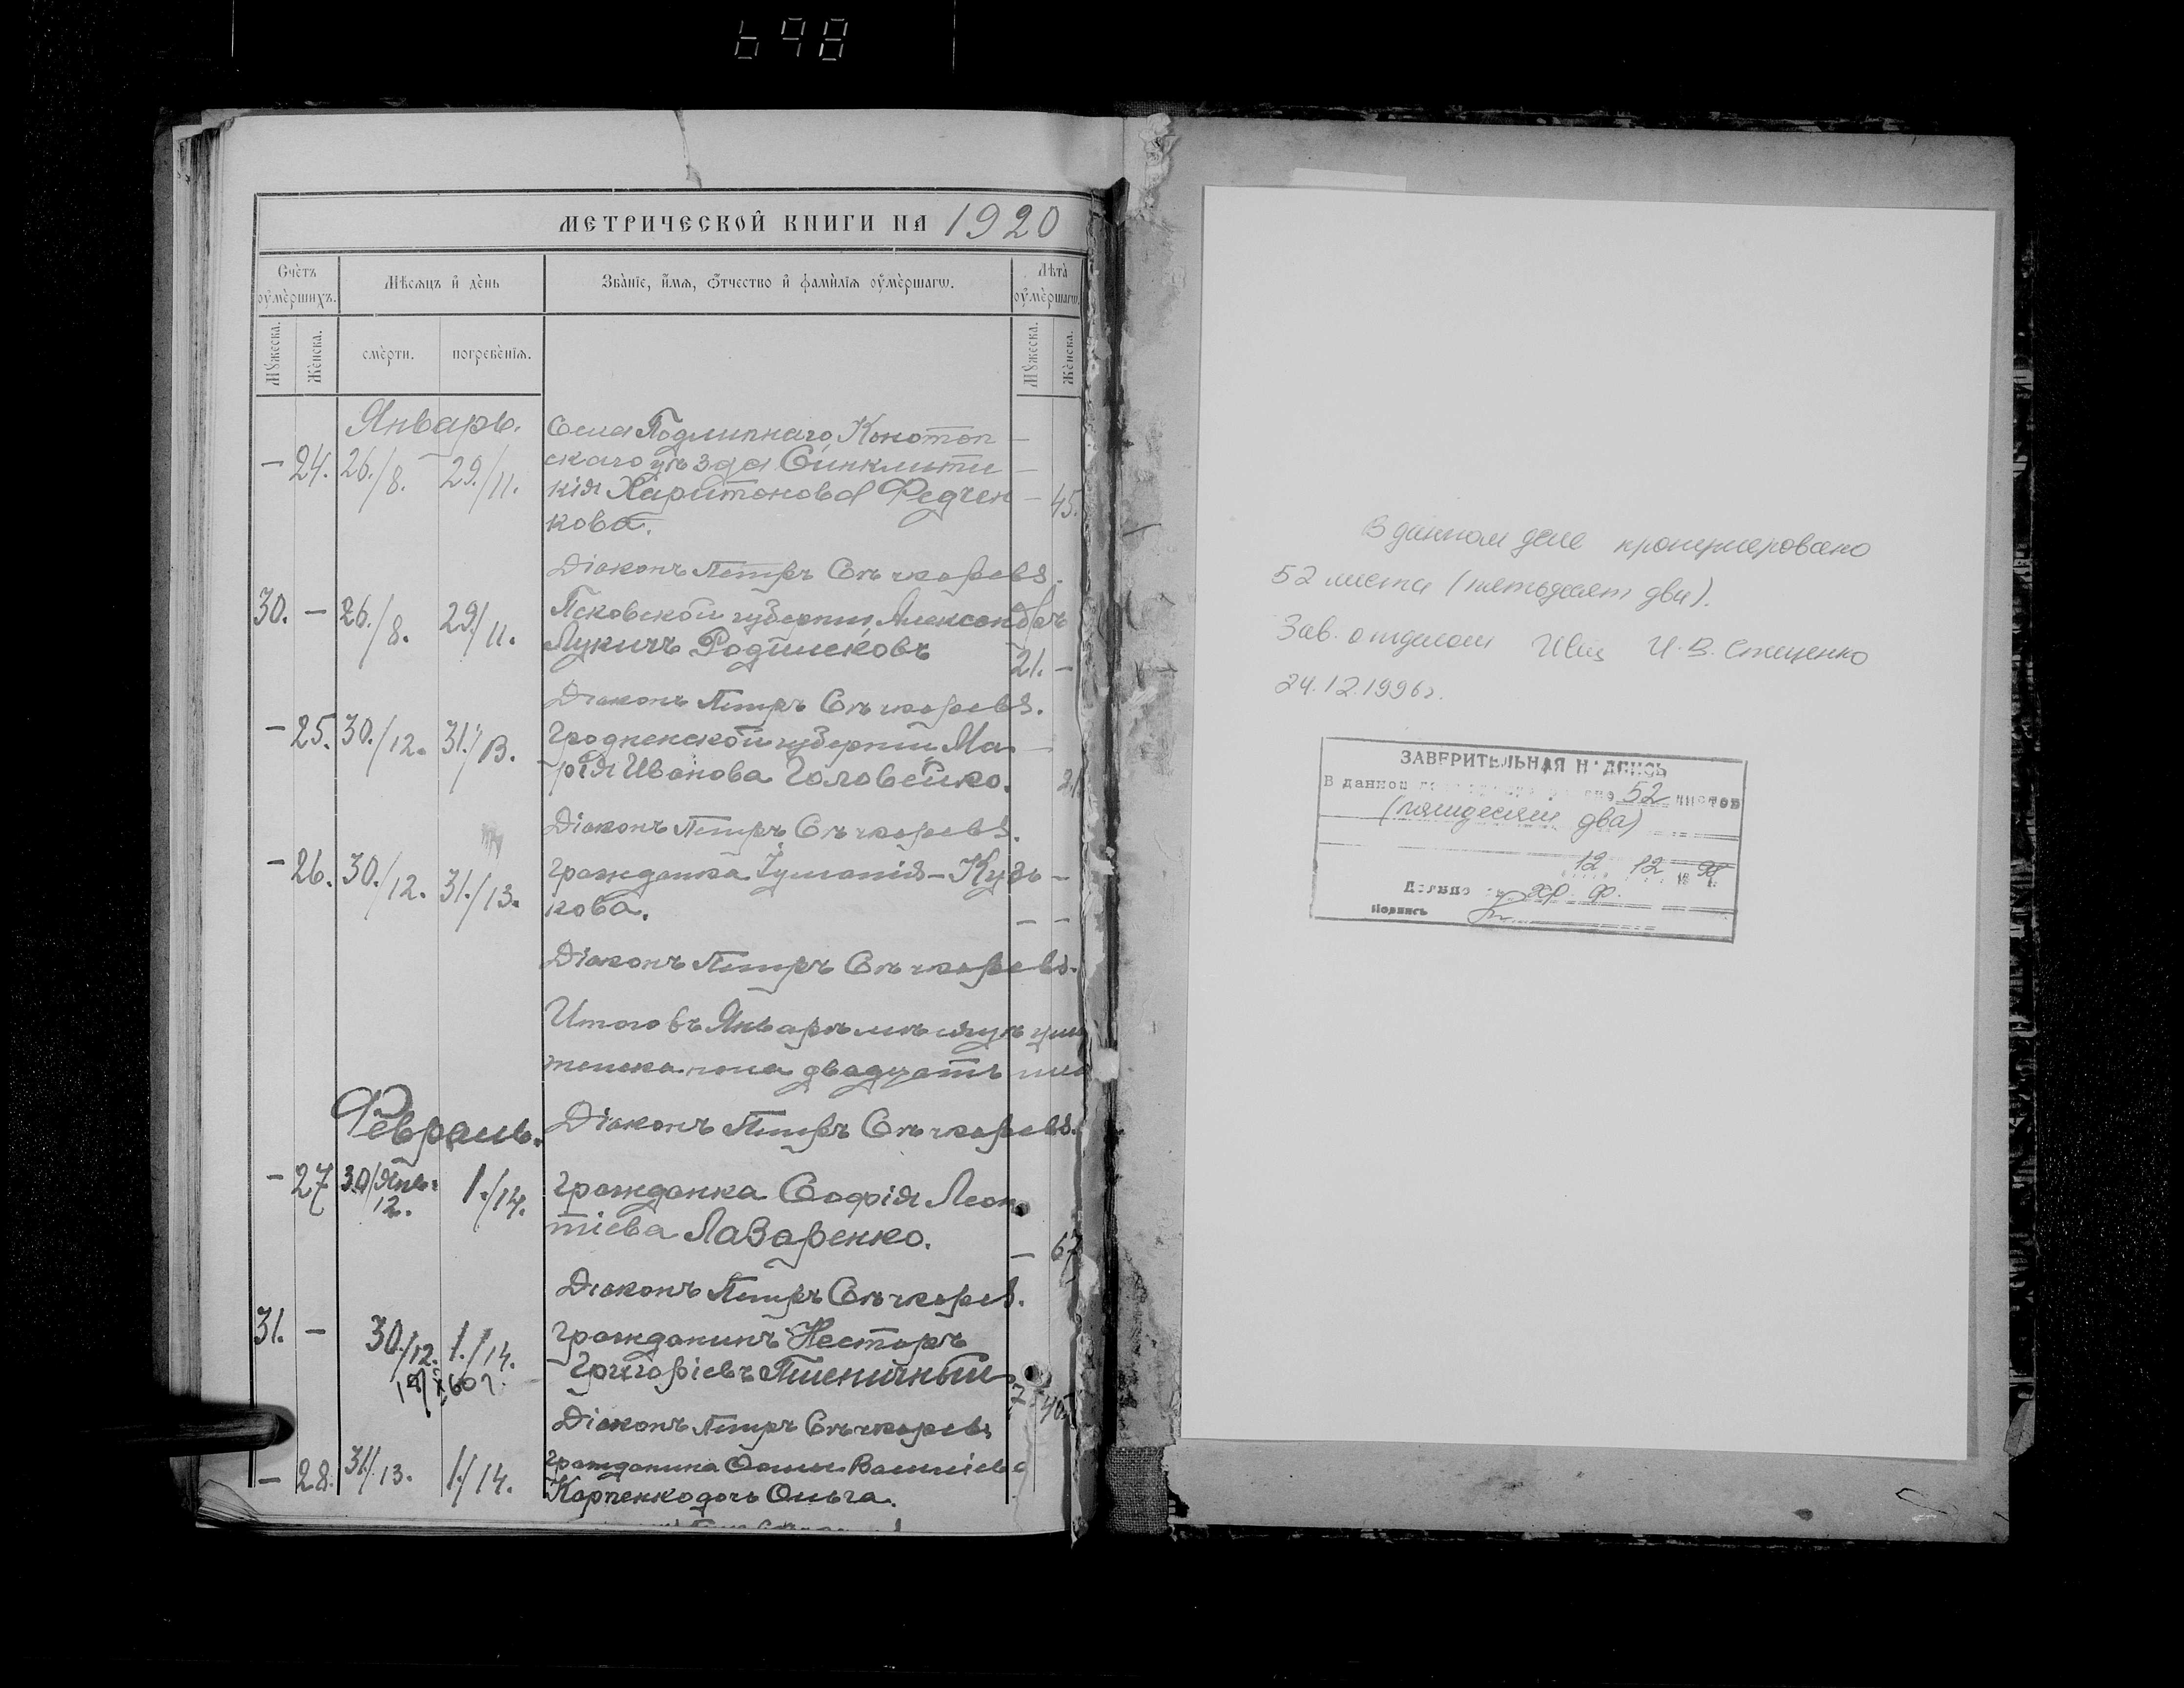 698
МЕТРИЧЕСКОЙ КНИГИ НА 1920
Счетъ оумершихъ.
Мѣсяцъ и день
Званіе, имя, отчество и фамилія оумершагw.
Лѣта оумершагw.
Мужеска.
Женска.
смерти.
погребенія.
Мужеска.
Женска.
Январь.
Села Подлипнаго, Конотоп –
– 24. 26./8. 29./11. скаго уѣзда Синклити –
кія Харитонова Федчен – 45.
кова.
Діаконъ Петръ Сѣчкаревъ.
30. – 26./8. 29./11. Псковской губерніи Александръ
Лукичъ Родшековъ 21. –
Діаконъ Петръ Сѣчкаревъ.
– 25. 30./12. 31./13. Гродненской губерніи Ма- –
рія Иванова Головейко.
Діаконъ Петръ Сѣчкаревъ.
– 26. 30./12. 31./13. гражданка Іуліанія – Кудь –
кова. – –
Діаконъ Петръ Сѣчкаревъ.
Итого въ Январѣ мѣсяцѣ
женска пола двадцать
Февраль. Діаконъ Петръ Сѣчкаревъ.
– 27 30/Янв. 12. 1./14. гражданка Софія Леон
тіева Лазаренко. – 67
Діаконъ Петръ Сѣчкарев.
31. – 30./12. 1./14. гражданинъ Несторъ
Григоріевъ Пшеничный
Діаконъ Петръ Сѣчкаревъ
– 28. 31./13. 1./14. гражданина Ѳомы Василіева
Карпенко дочь Ольга.
В данном деле пронумеровано
52 листа (пятьдесят два).
Зав. отделом И. В.
24.12.1996г.
ЗАВЕРИТЕЛЬНАЯ НАДПИСЬ
В данной 52 листов
(пятидесяти два)
12 12
Подпись